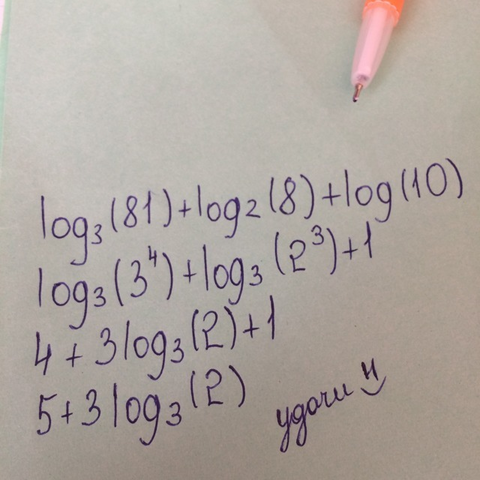 log₃(81)+log₂(8)+log(10)
log₃(3⁴)+log₃(2³)+1
4+3log₃(2)+1
5+3log₃(2)
удачи